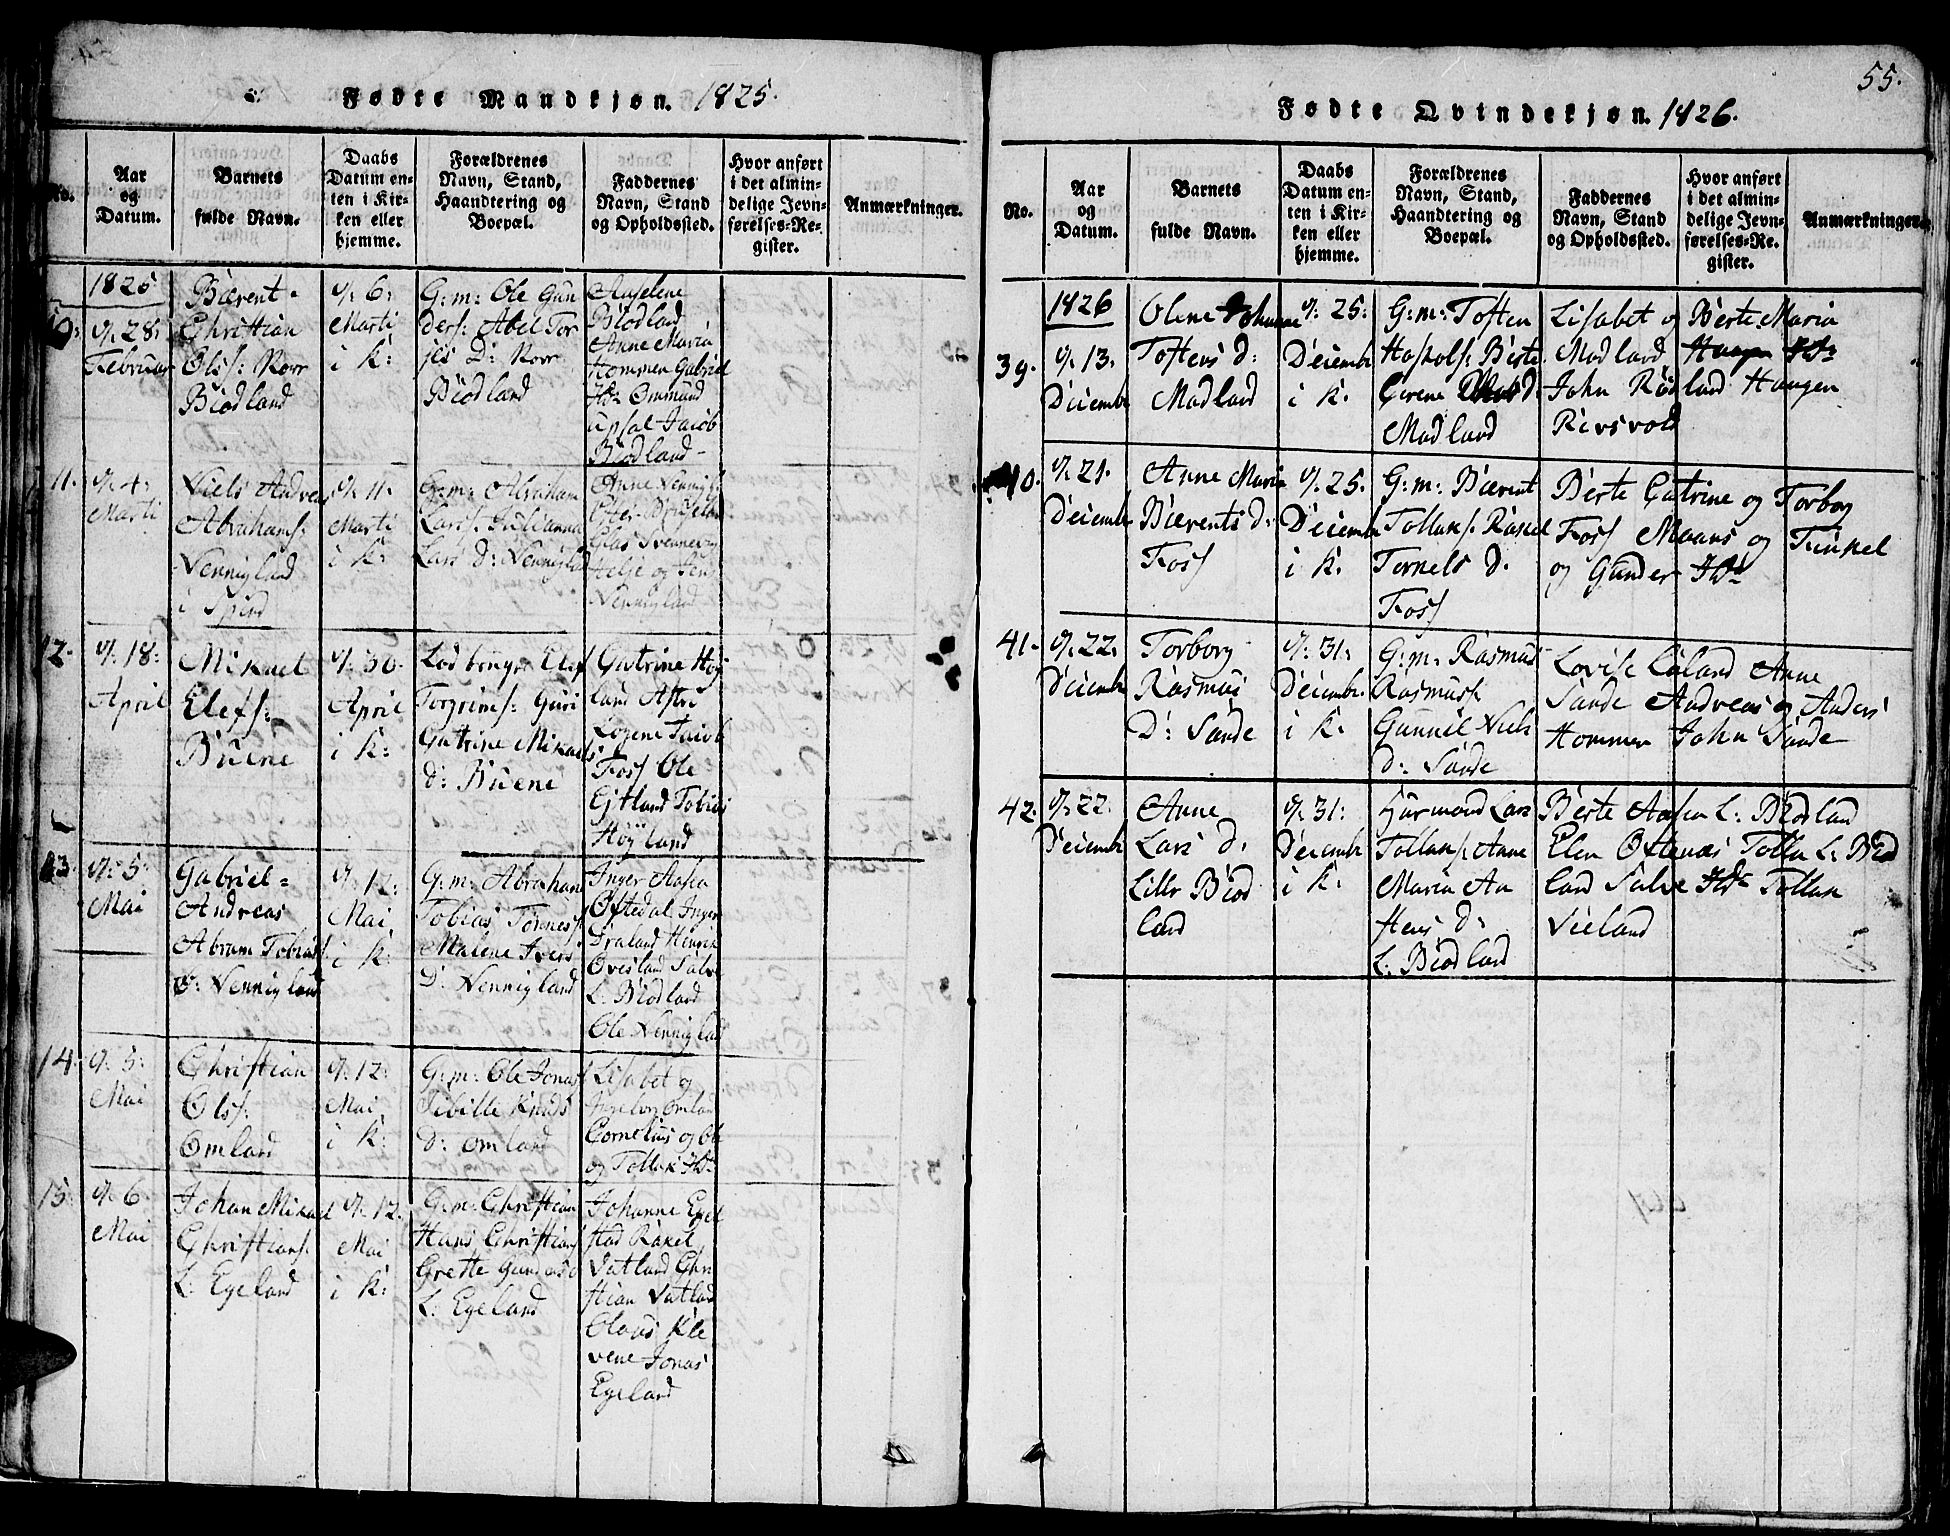 Fødte Mandkjøn. 1825.
No.
Aar og Datum.
Barnets fulde Navn.
Daabs Datum enten i Kirken eller hjemme.
Forældrenes Navn, Stand, Haandtering og Boepæl.
Faddernes Navn, Stand og Opholdssted.
Hvor anført i det almindelige Jevnførelses-Register.
Anmærkninger.
1825
10:
q. 28:
Februar
Bærent
Christian
Olss: Norr
Biödland
q. 6:
Marti
i K:
G:m: Ole Gun
ders: Abel Tor
jes D: Norr
Biödland
Aaselene
Biödland
Anne Maria
Hommen Gabriel
Ommund
Upsal Jacob
Biödland
11.
q. 4.
Marti
Niels Andreas
Abrahams:
Nennigland
i Spind
q. 11.
Marti
i K:
G:m: Abraham
Lars: Julianna
Lars d: Nennigland
Anne
og Jens
Nennigland
12.
q. 18:
April
Mikael
Elefs:
Buene
q. 30.
April
i K:
Torgrims: Guri
Catrine Mikaels
d: Buene
Catrine Höj
land Astri
Jacob
Foss Ole
Ejtland Tobias
Höyland
13.
q. 5:
Mai
Gabriel=
Andreas
Abram Tobias
Nennigland
q. 12:
Mai
i K:
G:m: Abraham
Tobias Tönness:
Malene Ivers
D: Nennigland
Inger Aasta
Öftedal Inger
Draland Henrik
Övesland Salve
L. Biödland
Ole Nennigland
14.
q. 5:
Mai
Christian
Olss:
Omland
q. 12:
Mai
i K:
G:m: Ole Jonass
Sibille Knuds
d: Omland
Lisabet og
Omland
Cornelius og Ole
og Tollak
15.
q. 6.
Mai
Johan Mikael
Christians:
L: Egeland
q. 12.
Mai
i K:
G:m: Christian
Hans Christian
Grette Gunders d
L. Egeland
Johanne Egel
stad Rakel
Vatland Chri
stian Vatland
Olaus Kle
vene Jonas
Egeland
55.
Fødte Qvindekjøn. 1826.
No.
Aar og Datum.
Barnets fulde Navn.
Daabs Datum enten i Kirken eller hjemme.
Forældrenes Navn, Stand, Haandtering og Boepæl.
Faddernes Navn, Stand og Opholdssted.
Hvor anført i det almindelige Jevnførelses-Register.
Anmærkninger.
1826
39.
q. 13.
Decembr
Olene Johanne
Tostens d:
Madland
q. 25:
Decembr
i K.
G:m: Tosten
Berte
Serene
Madland
Lisabet og Berte Maria
Madland
John Rödland Haugen
Risvold
40.
q. 21.
Decembr
Anne Maria
Bærents d:
Foss
q. 25.
Decembr
i K.
G:m: Bærent
Tollaks: Rakel
Tornels d.
Foss
Berte Catrine og Torborg
Foss Maans og Tinkel
og Gunder
41.
q. 22.
Decembr
Torborg
Rasmus
D: Sande
q. 31:
Decembr
i K.
G:m: Rasmus
Rasmuss:
Gunnil Niels
d: Sande
Lovise Löland Anne
Sande Andreas og Anders
Hommen John Sande
42.
q. 22.
Decembr
Anne
Lars d:
Lille Biöd
land
q. 31:
Decembr
i K.
Lars
Tollaks: Anne
Maria An
stens d:
L. Biödland
Berte Aasta L: Biödland
Elen Oftenæs Tolla L. Biöd
land Salve Tollak
Vieland